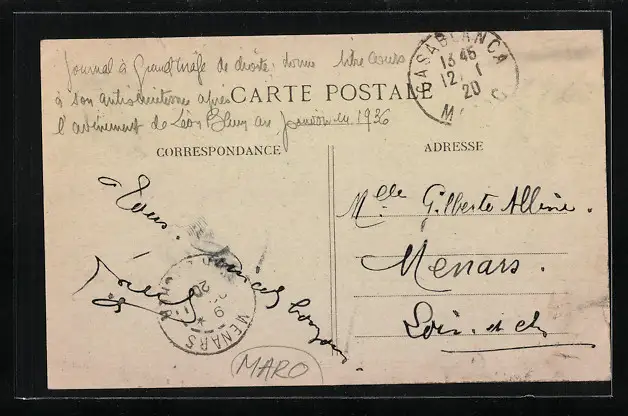 Journal à Grand tirage de droite, donne libre cours
à son antisémitisme après
l'avènement de Léon Blum au pouvoir en 1936
CARTE POSTALE
CASABLANCA
13 45
12 - 1
20
MAROC
CORRESPONDANCE
ADRESSE
à tous.
Amical bonjour
Mlle Gilberte Alline.
Menars.
Loir-et-Ch
MENARS
20
MARO